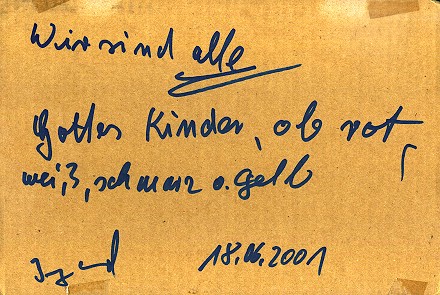 Wir sind alle
Gottes Kinder, ob rot,
weiß, schwarz o. gelb
18.06.2001